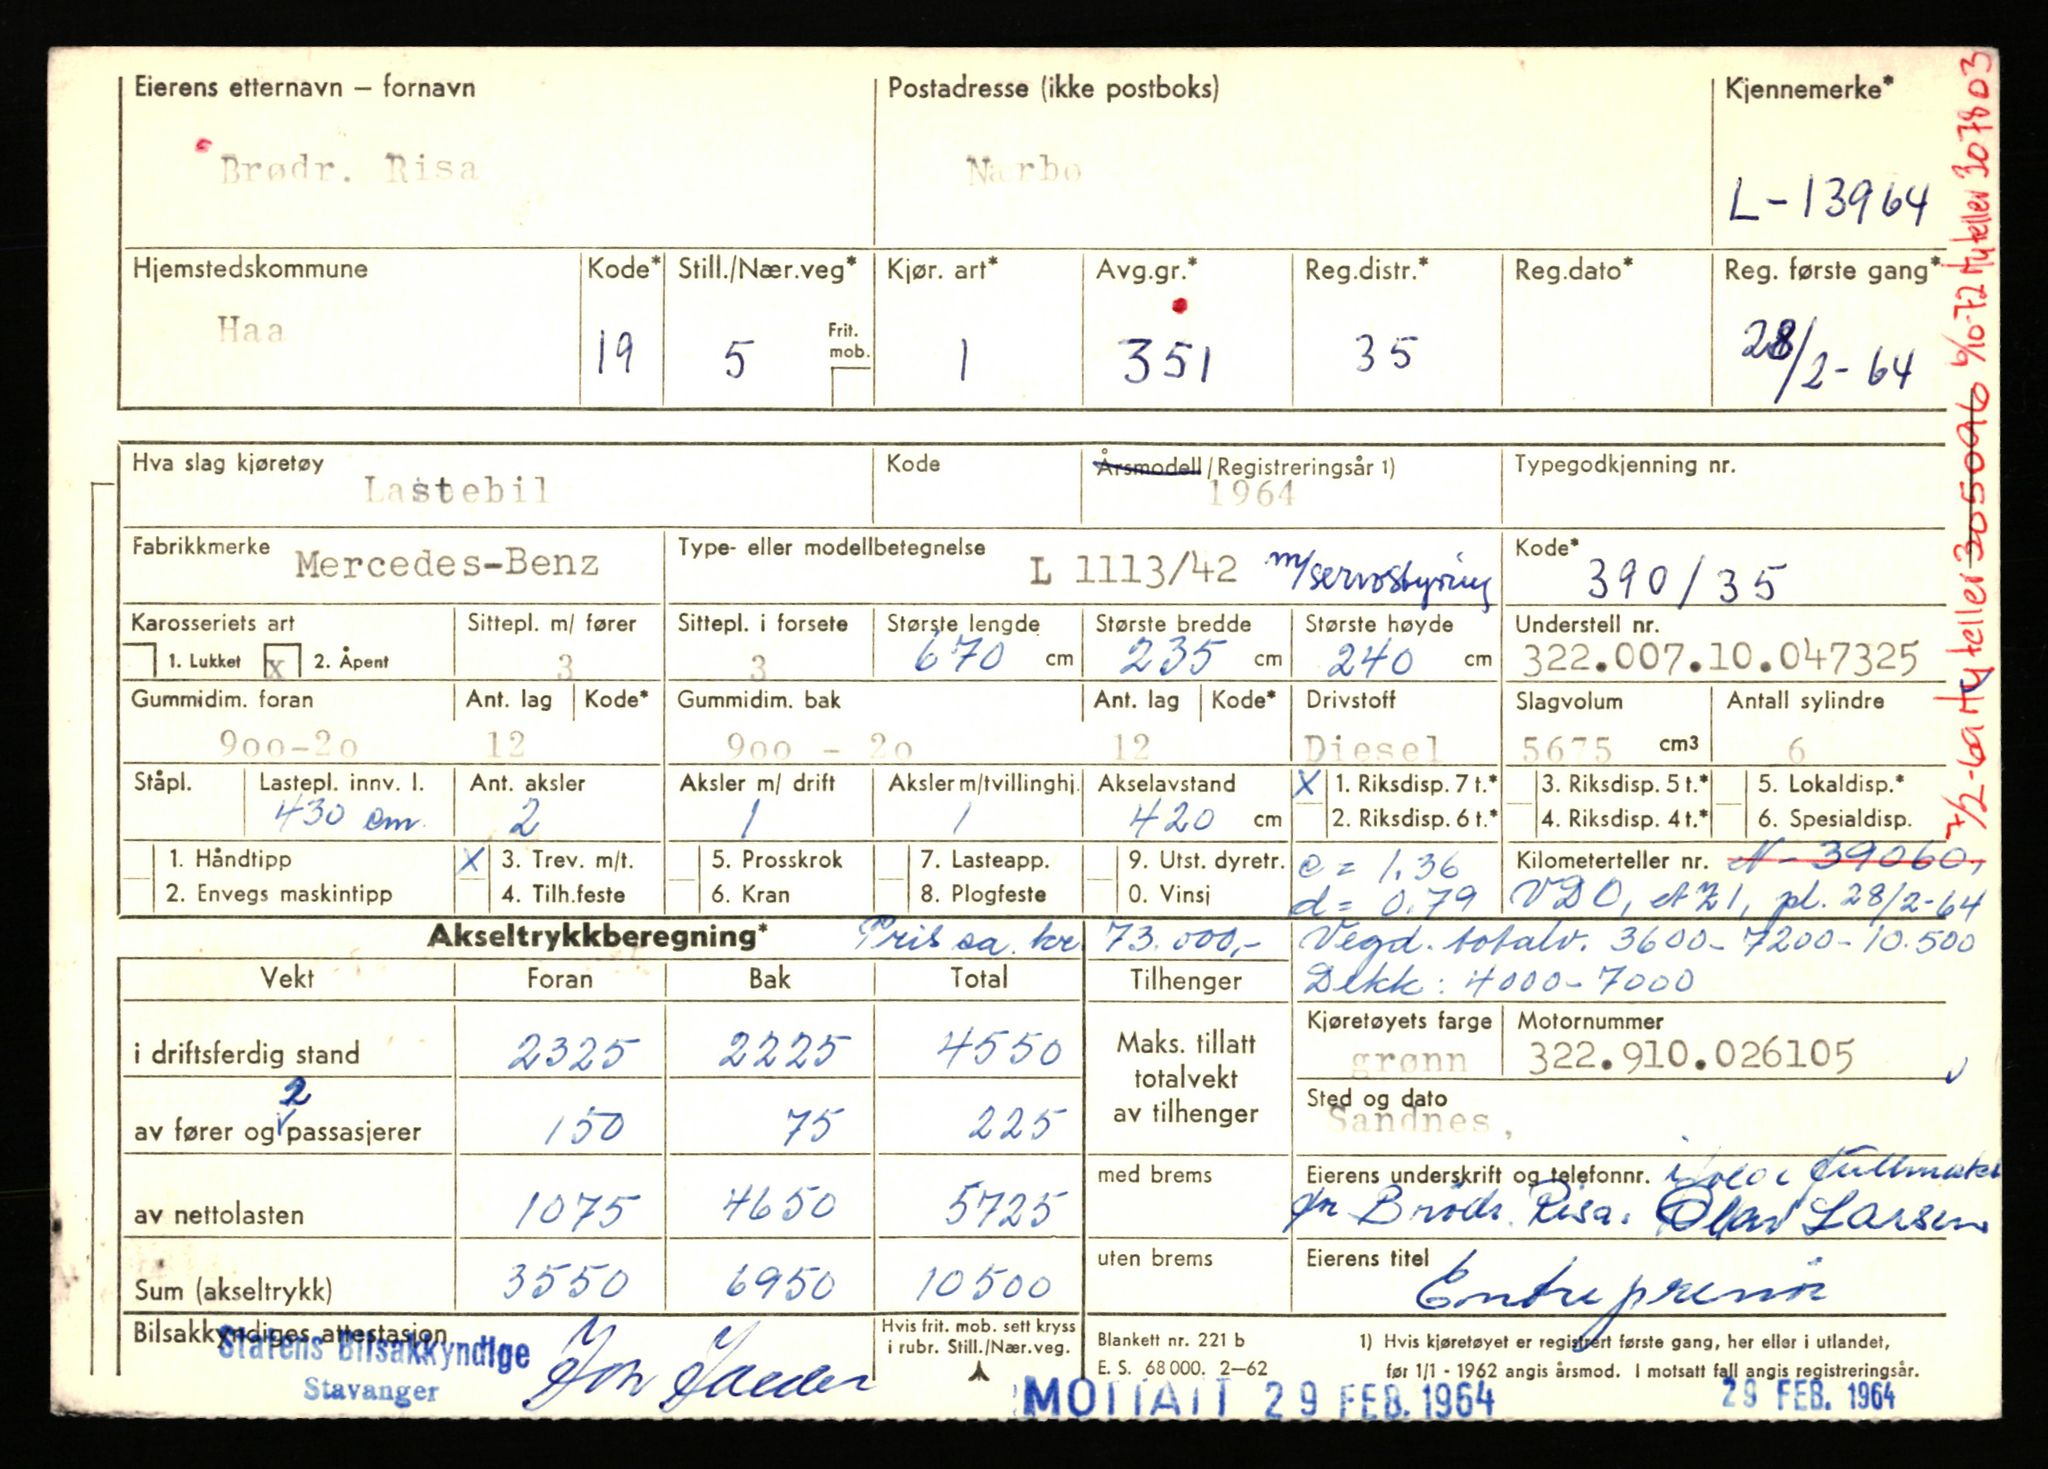 Eierens etternavn – fornavn Postadresse (ikke postboks) Kjennemerke*
Brødr. Risa Nærbo L-13964
Hjemstedskommune Kode* Still./Nær.veg* Kjør. art* Avg.gr.* Reg.distr.* Reg.dato* Reg. første gang*
Haa 19 5 Frit. mob. 1 351 35 28/2-64
Hva slag kjøretøy Kode Årsmodell/Registreringsår 1) Typegodkjenning nr.
Lastebil 1964
Fabrikkmerke Mercedes-Benz Type- eller modellbetegnelse L 1113/42 m/servostyring Kode* 390/35
Karosseriets art Sittepl. m/ fører Sittepl. i forsete Største lengde Største bredde Største høyde Understell nr.
1. Lukket x 2. Åpent 3 3 670 cm 235 cm 240 cm 322.007.10.047325
Gummidim. foran Ant. lag Kode* Gummidim. bak Ant. lag Kode* Drivstoff Slagvolum Antall sylindre
900-20 12 900 - 20 12 Diesel 5675 cm3 6
Ståpl. Lastepl. innv. l. Ant. aksler Aksler m/ drift Aksler m/tvillinghj. Akselavstand X 1. Riksdisp. 7 t.* 3. Riksdisp. 5 t.* 5. Lokaldisp.*
430 cm. 2 1 1 420 cm 2. Riksdisp. 6 t.* 4. Riksdisp. 4 t.* 6. Spesialdisp.
1. Håndtipp X 3. Trev. m/t. 5. Prosskrok 7. Lasteapp. 9. Utst. dyretr. c = 1.36 Kilometerteller nr. N-39060,
2. Envegs maskintipp 4. Tilh.feste 6. Kran 8. Plogfeste 0. Vinsj d = 0.79 VDO, et 21, pl. 28/2-64
Akseltrykkberegning* Pris ca. kr 73.000,- Vegd. totalv. 3600-7200-10.500
Vekt Foran Bak Total Tilhenger Dekk: 4000-7000
i driftsferdig stand 2325 2225 4550 Maks. tillatt totalvekt av tilhenger Kjøretøyets farge grønn Motornummer 322.910.026105
av fører og 2 passasjerer 150 75 225 Sted og dato Sandnes,
av nettolasten 1075 4650 5725 med brems Eierens underskrift og telefonnr. Fullmakt
Brødr. Risa. Olav Larsen
Sum (akseltrykk) 3550 6950 10500 uten brems Eierens titel Entreprenør
Bilsakkyndiges attestasjon Hvis frit. mob. sett kryss i rubr. Still./Nær.veg. Blankett nr. 221 b 1) Hvis kjøretøyet er registrert første gang, her eller i utlandet,
Statens Bilsakkyndige E. S. 68 000. 2–62 før 1/1 - 1962 angis årsmod. I motsatt fall angis registreringsår.
Stavanger MOTTATT 29 FEB. 1964 29 FEB. 1964
7/2-69 Ny teller 305096 6/10-72 Ny teller 307803